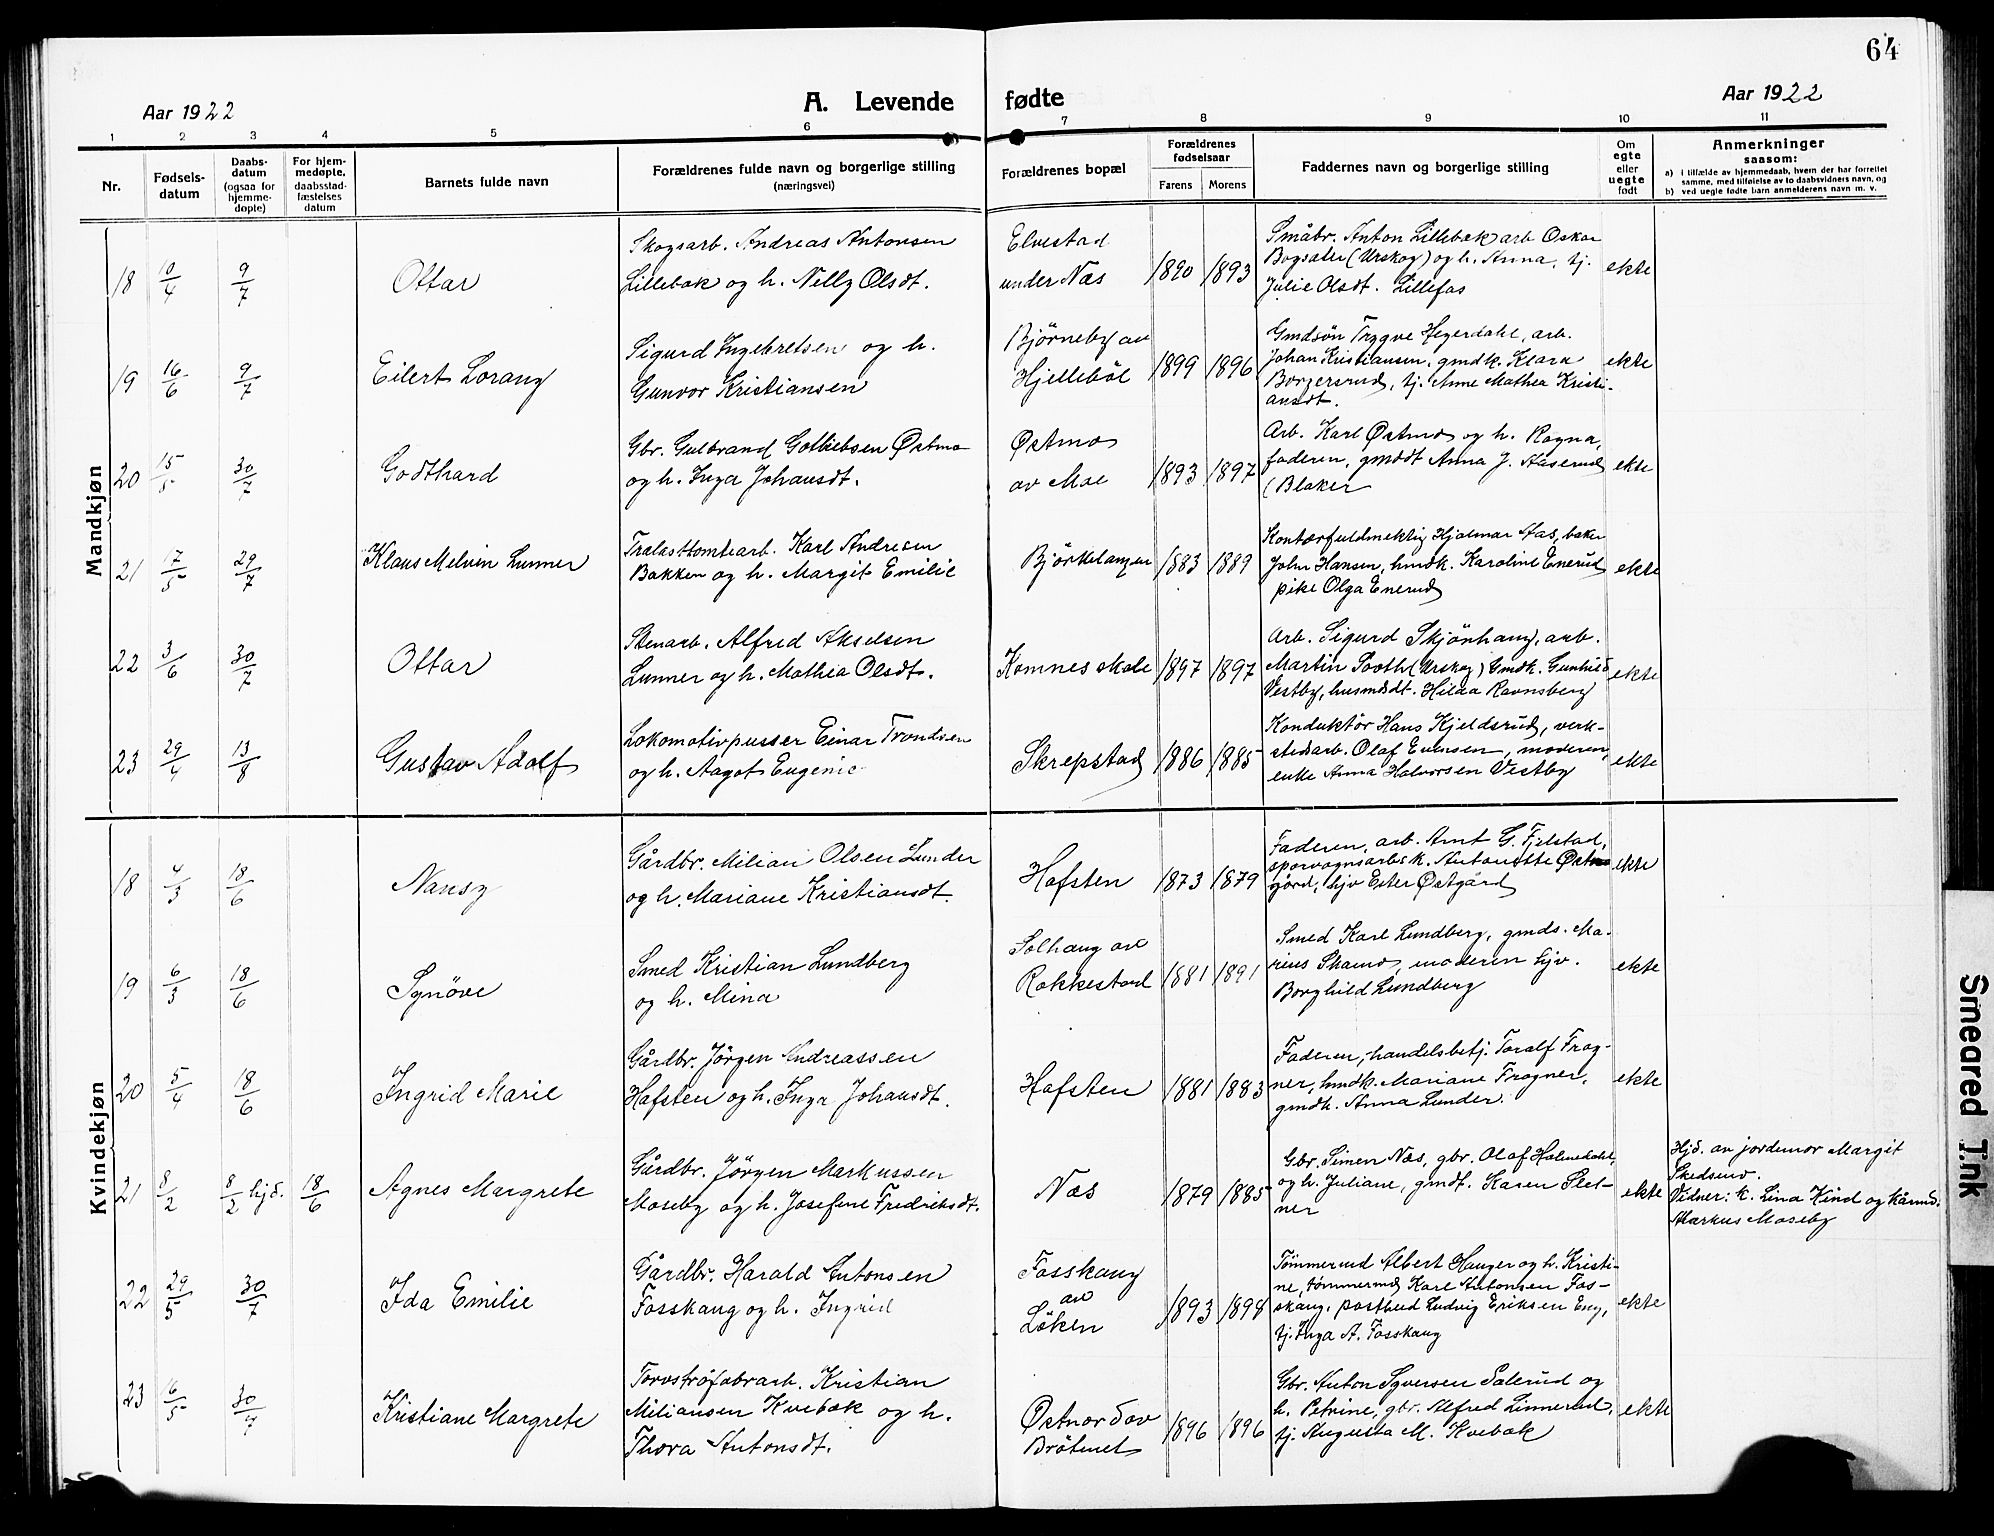 64
Aar 1922
A. Levende fødte
Aar 1922
1 2 3 4 5 6 7 8 9 10 11
Nr.
Fødsels-
datum
Daabs-
datum
(ogsaa for
hjemme-
døpte)
For hjem-
medøpte,
daabsstad-
fæstelses
datum
Barnets fulde navn
Forældrenes fulde navn og borgerlige stilling
(næringsvei)
Forældrenes bopæl
Forældrenes
fødselsaar
Farens Morens
Faddernes navn og borgerlige stilling
Om
egte
eller
uegte
født
Anmerkninger
saasom:
a) i tilfælde av hjemmedaab, hvem der har forrettet
samme, med tilføielse av to daabsvidners navn, og
b) ved uegte fødte barn anmelderens navn m. v.
Mandkjøn
18 10/4 9/7 Ottar
Skogsarb. Andreas Antonsen
Lillebæk og h. Nelly Olsdt.
Elvestad
under Næs
1890 1893
Småbr. Anton Lillebæk arb Oskar
Bogsæter (Urskog) og h. Anna, tj.
Julie Olsdt. Lillefos
ekte
19 16/6 9/7 Eilert Lorang
Sigurd Ingebretsen og h.
Gunvor Kristiansen
Bjørneby av
Hjellebøl
1899 1896
Gmdsøn Trygve Hegerdahl, arb.
Johan Kristiansen, gmdk. Klara
Borgersrud, tj. Anne Mathea Kristi-
ansdt.
ekte
20 15/5 30/7 Godthard
Gbr. Gulbrand Gotliebsen Østmo
og h. Inga Johansdt.
Østmo
av Moe
1893 1897
Arb. Karl Østmo og h. Ragna,
faderen, gmddt Anna J. Aaserud
(Blaker
ekte
21 17/5 29/7 Klaus Melvin Lunner
Trælasttomtearb. Karl Andresen
Bakken og h. Margit Emilie
Bjørkelangen
1883 1889
Kontorfuldmektig Hjalmar Aas, baker
John Hansen, hmdk. Karoline Enerud
pike Olga Enerud
ekte
22 3/6 30/7 Ottar
Stenarb. Alfred Akselsen
Lunner og h. Mathea Olsdt.
Komnes skole
1897 1897
Arb. Sigurd Skjønhaug, arb.
Martin Sooth (Urskog) Gmdk. Gunhild
Vestby, husmddt. Hilda Ravnsberg
ekte
23 29/4 13/8 Gustav Adolf
Lokomotivpusser Einar Trondsen
og h. Aagot Eugenie
Skrepstad
1886 1885
Konduktør Hans Kjeldsrud, verk-
stedarb. Olaf Evensen, moderen,
enke Anna Halvorsen Vestby
ekte
Kvindekjøn
18 4/3 18/6 Nansy
Gårdbr. Milian Olsen Lunder
og h. Mariane Kristiansdt.
Hafsten
1873 1879
Faderen, arb. Arnt G. Fjelstad,
sporvognsarb. k. Antonette Øst-
gård, hjv Ester Østgård
ekte
19 6/3 18/6 Synøve
Smed Kristian Lundberg
og h. Mina
Solhaug av
Rakkestad
1881 1891
Smed Karl Lundberg, gmds. Ma-
rius Skamo, moderen hjv.
Borghild Lundberg
ekte
20 5/4 18/6 Ingrid Marie
Gårdbr. Jørgen Andreassen
Hafsten og h. Inga Johansdt.
Hafsten
1881 1883
Faderen, handelsbetj. Toralf Frog-
ner, hmdk. Mariane Frogner,
gmdk. Anna Lunder.
ekte
21 8/2 8/2 hjd. 18/6 Agnes Margrete
Gårdbr. Jørgen Markussen
Moseby og h. Josefine Fredriksdt.
Næs
1879 1885
Gbr. Simen Næs, gbr. Olaf Holmedahl,
og h. Juliane, gmdt. Karen Plet-
ner
ekte
Hjd. av jordemor Margit
Skedsmo.
Vidner: k. Lina Kind og kårmd.
Markus Moseby
22 29/5 30/7 Ida Emilie
Gårdbr. Harald Antonsen
Fosskaug og h. Ingrid
Fosskaug
av
Løken
1893 1898
Tømmermd Albert Hauger og h. Kristi-
ne, tømmermd Karl Antonsen Fos-
skaug, postbud Ludvig Eriksen Eng,
tj. Inga A. Fosskaug
ekte
23 16/5 30/7 Kristiane Margrete
Torvstrøfabrarb. Kristian
Miliansen Kvebæk og h.
Thora Antonsdt.
Østnordav
Bråtenet
1896 1896
Gbr. Anton Syversen Salerud og
h. Petrine, gbr. Alfred Linnerud,
tj. Augusta M. Kvebæk
ekte
Smeared Ink